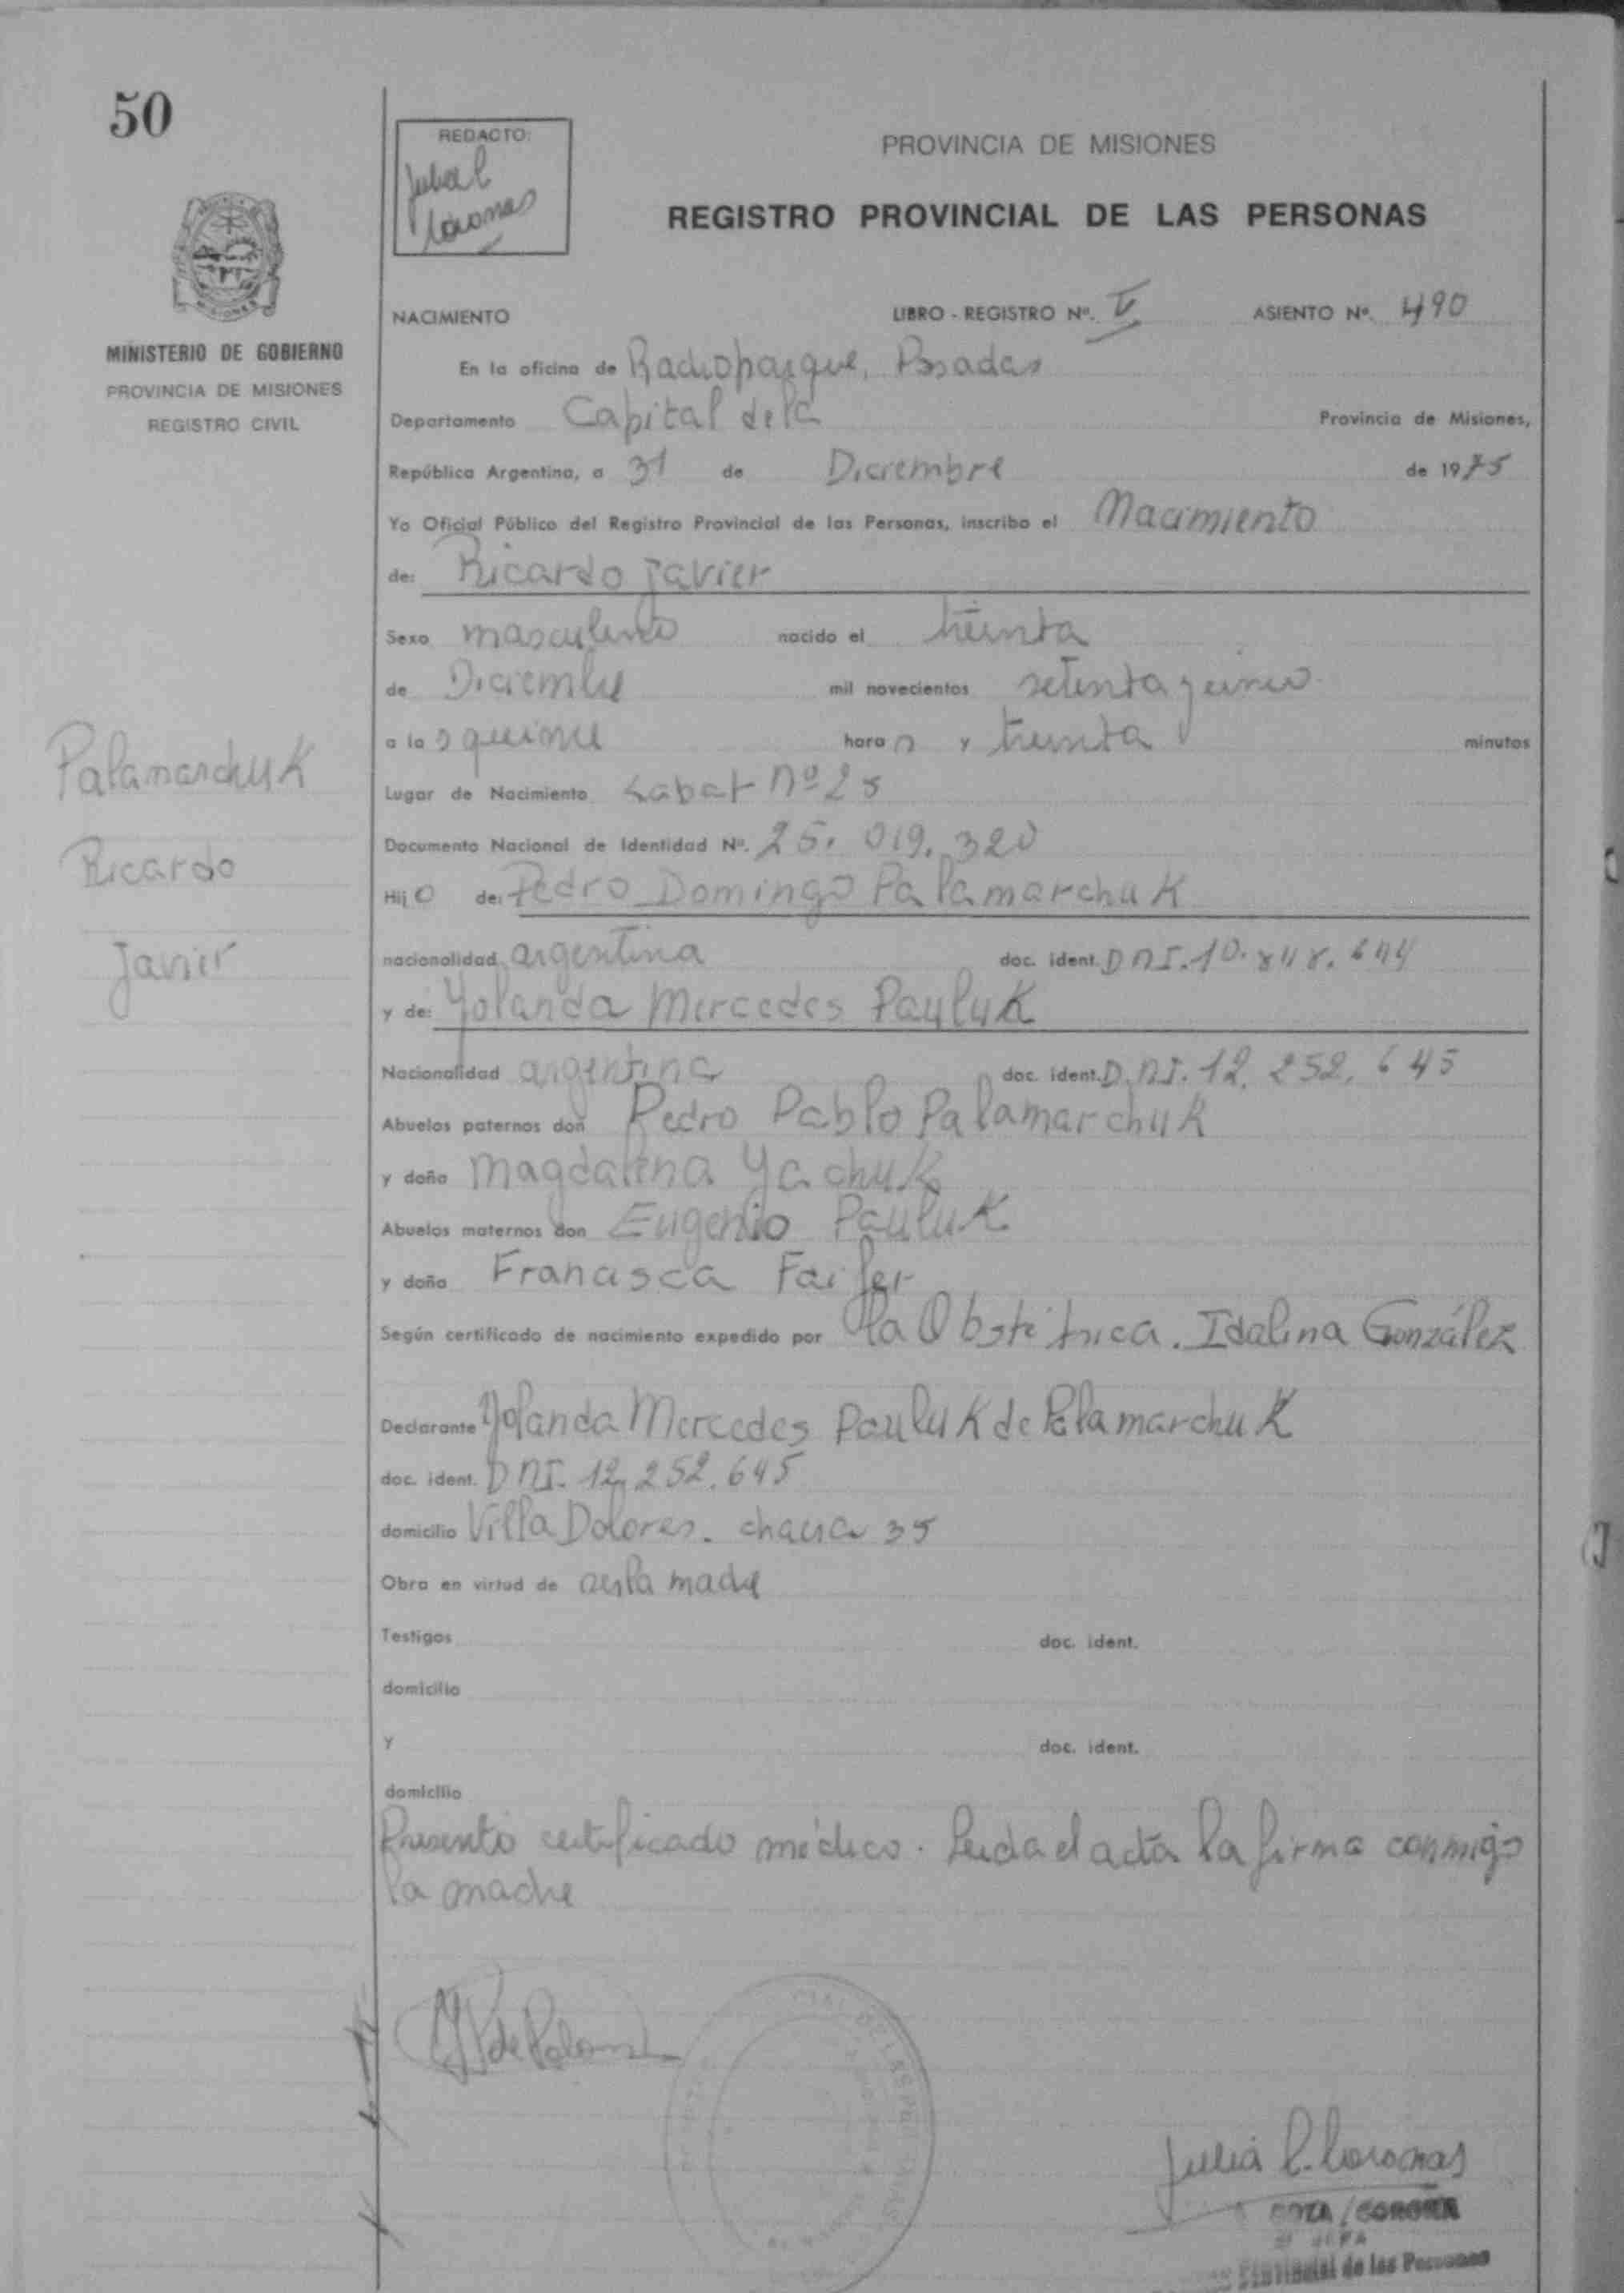 50
REDACTO:
PROVINCIA DE MISIONES
REGISTRO PROVINCIAL DE LAS PERSONAS
MINISTERIO DE GOBIERNO
PROVINCIA DE MISIONES
REGISTRO CIVIL
NACIMIENTO LIBRO - REGISTRO Nº. V ASIENTO Nº. 490
En la oficina de Radioparque, Posadas
Departamento Capital de la Provincia de Misiones,
República Argentina, a 31 de Diciembre de 1975
Yo Oficial Público del Registro Provincial de las Personas, inscribo el Nacimiento
de: Ricardo Javier
Sexo masculino nacido el treinta
de Diciembre mil novecientos setenta y cinco
a las quince horas y treinta minutos
Lugar de Nacimiento Labat nº 25
Documento Nacional de Identidad Nº. 25.019.320
Hijo de: Pedro Domingo Palamarchuk
nacionalidad argentina doc. ident. DNI. 10.848.644
y de: Yolanda Mercedes Pauluk
Nacionalidad argentina doc. ident. D.NI. 12.252.645
Abuelos paternos don Pedro Pablo Palamarchuk
y doña Magdalena Yachuk
Abuelos maternos don Eugenio Pauluk
y doña Francisca Faifer
Según certificado de nacimiento expedido por la Obstétrica. Idalina González
Declarante Yolanda Mercedes Pauluk de Palamarchuk
doc. ident. DNI. 12.252.645
domicilio Villa Dolores. chacra 35
Obra en virtud de ser la madre
Testigos doc. ident.
domicilio
y doc. ident.
domicilio
Presentó certificado médico. Leida el acta la firma conmigo
la madre
Palamarchuk
Ricardo
Javier
Julia C. Coronas
Provincial de las Personas